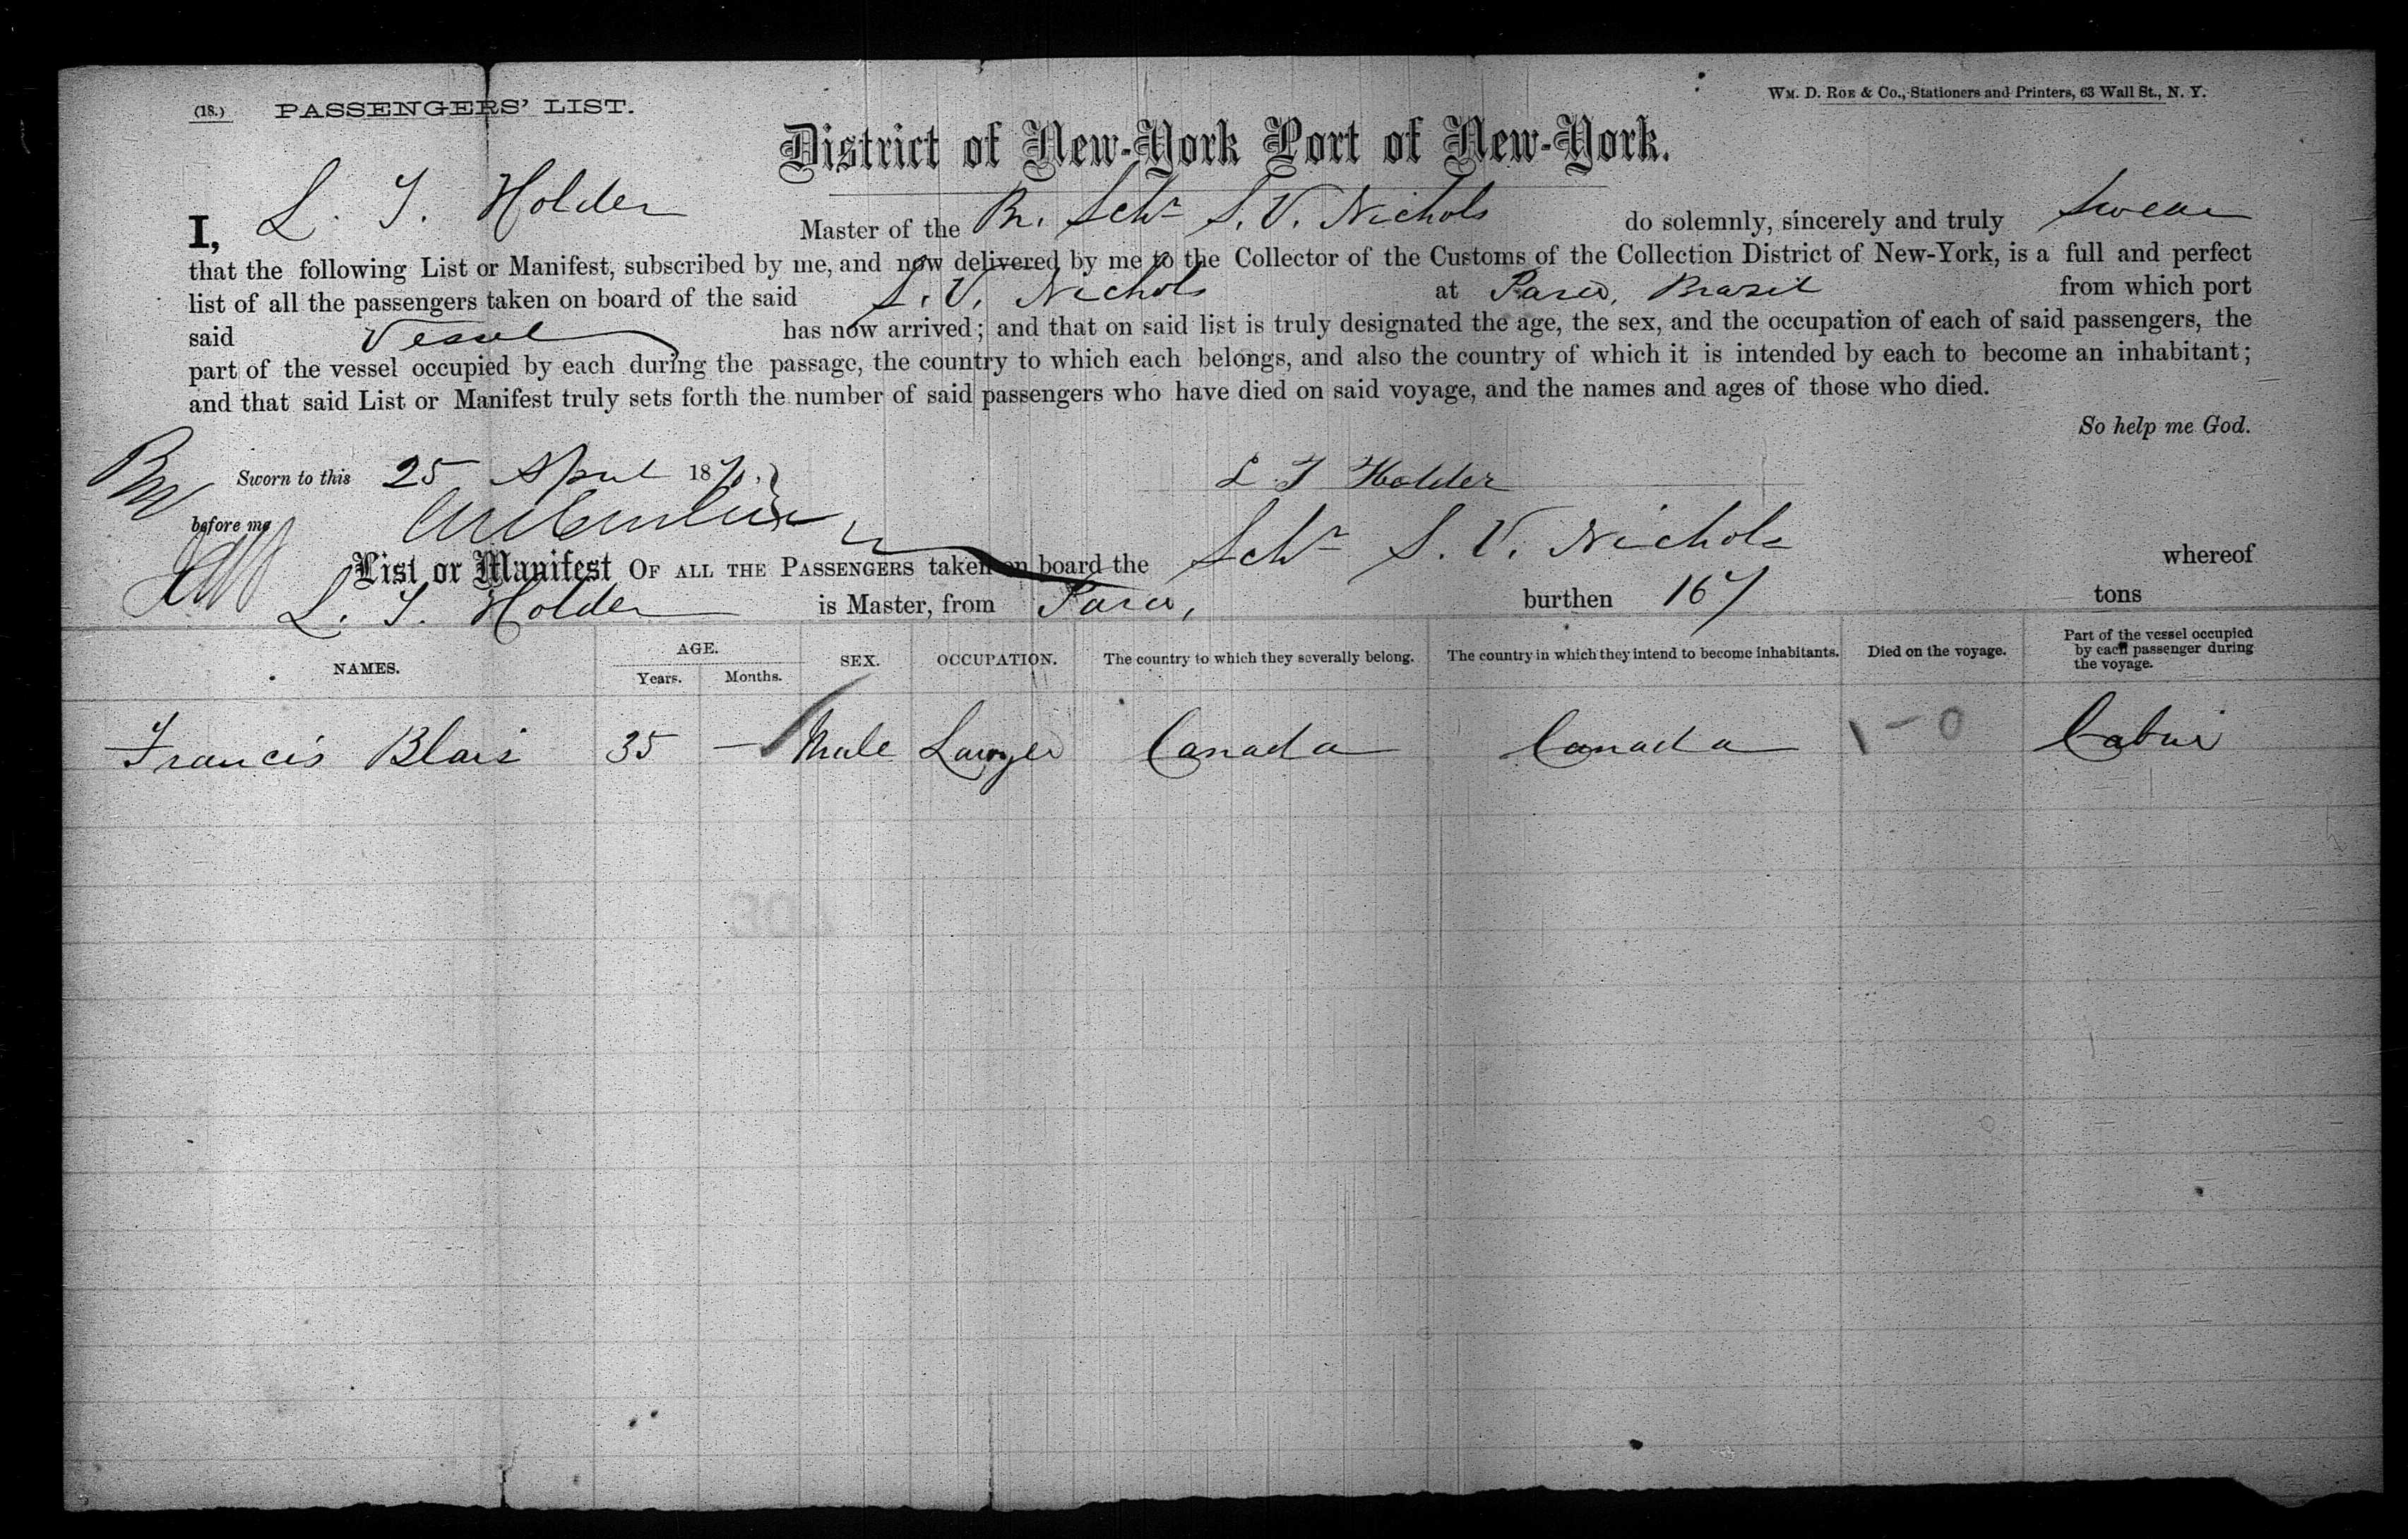 (18.) PASSENGERS' LIST.
WM. D. ROE & Co., Stationers and Printers, 63 Wall St., N. Y.
District of New-York Port of New-York.
I, L. T. Holder Master of the Br. Schr S. V. Nichols do solemnly, sincerely and truly Swear
that the following List or Manifest, subscribed by me, and now delivered by me to the Collector of the Customs of the Collection District of New-York, is a full and perfect
list of all the passengers taken on board of the said S. V. Nichols at Para, Brazil from which port
said Vessel has now arrived; and that on said list is truly designated the age, the sex, and the occupation of each of said passengers, the
part of the vessel occupied by each during the passage, the country to which each belongs, and also the country of which it is intended by each to become an inhabitant;
and that said List or Manifest truly sets forth the number of said passengers who have died on said voyage, and the names and ages of those who died.
So help me God.
Sworn to this 25 April 187
L. T Holder
before me
List or Manifest OF ALL THE PASSENGERS taken on board the Schr S. V. Nichols whereof
L. T. Holder is Master, from Para, burthen 167 tons
NAMES. AGE. Years. Months. SEX. OCCUPATION. The country to which they severally belong. The country in which they intend to become inhabitants. Died on the voyage. Part of the vessel occupied by each passenger during the voyage.
Francis Blais 35 — Male Lawyer Canada Canada 1-0 Cabin